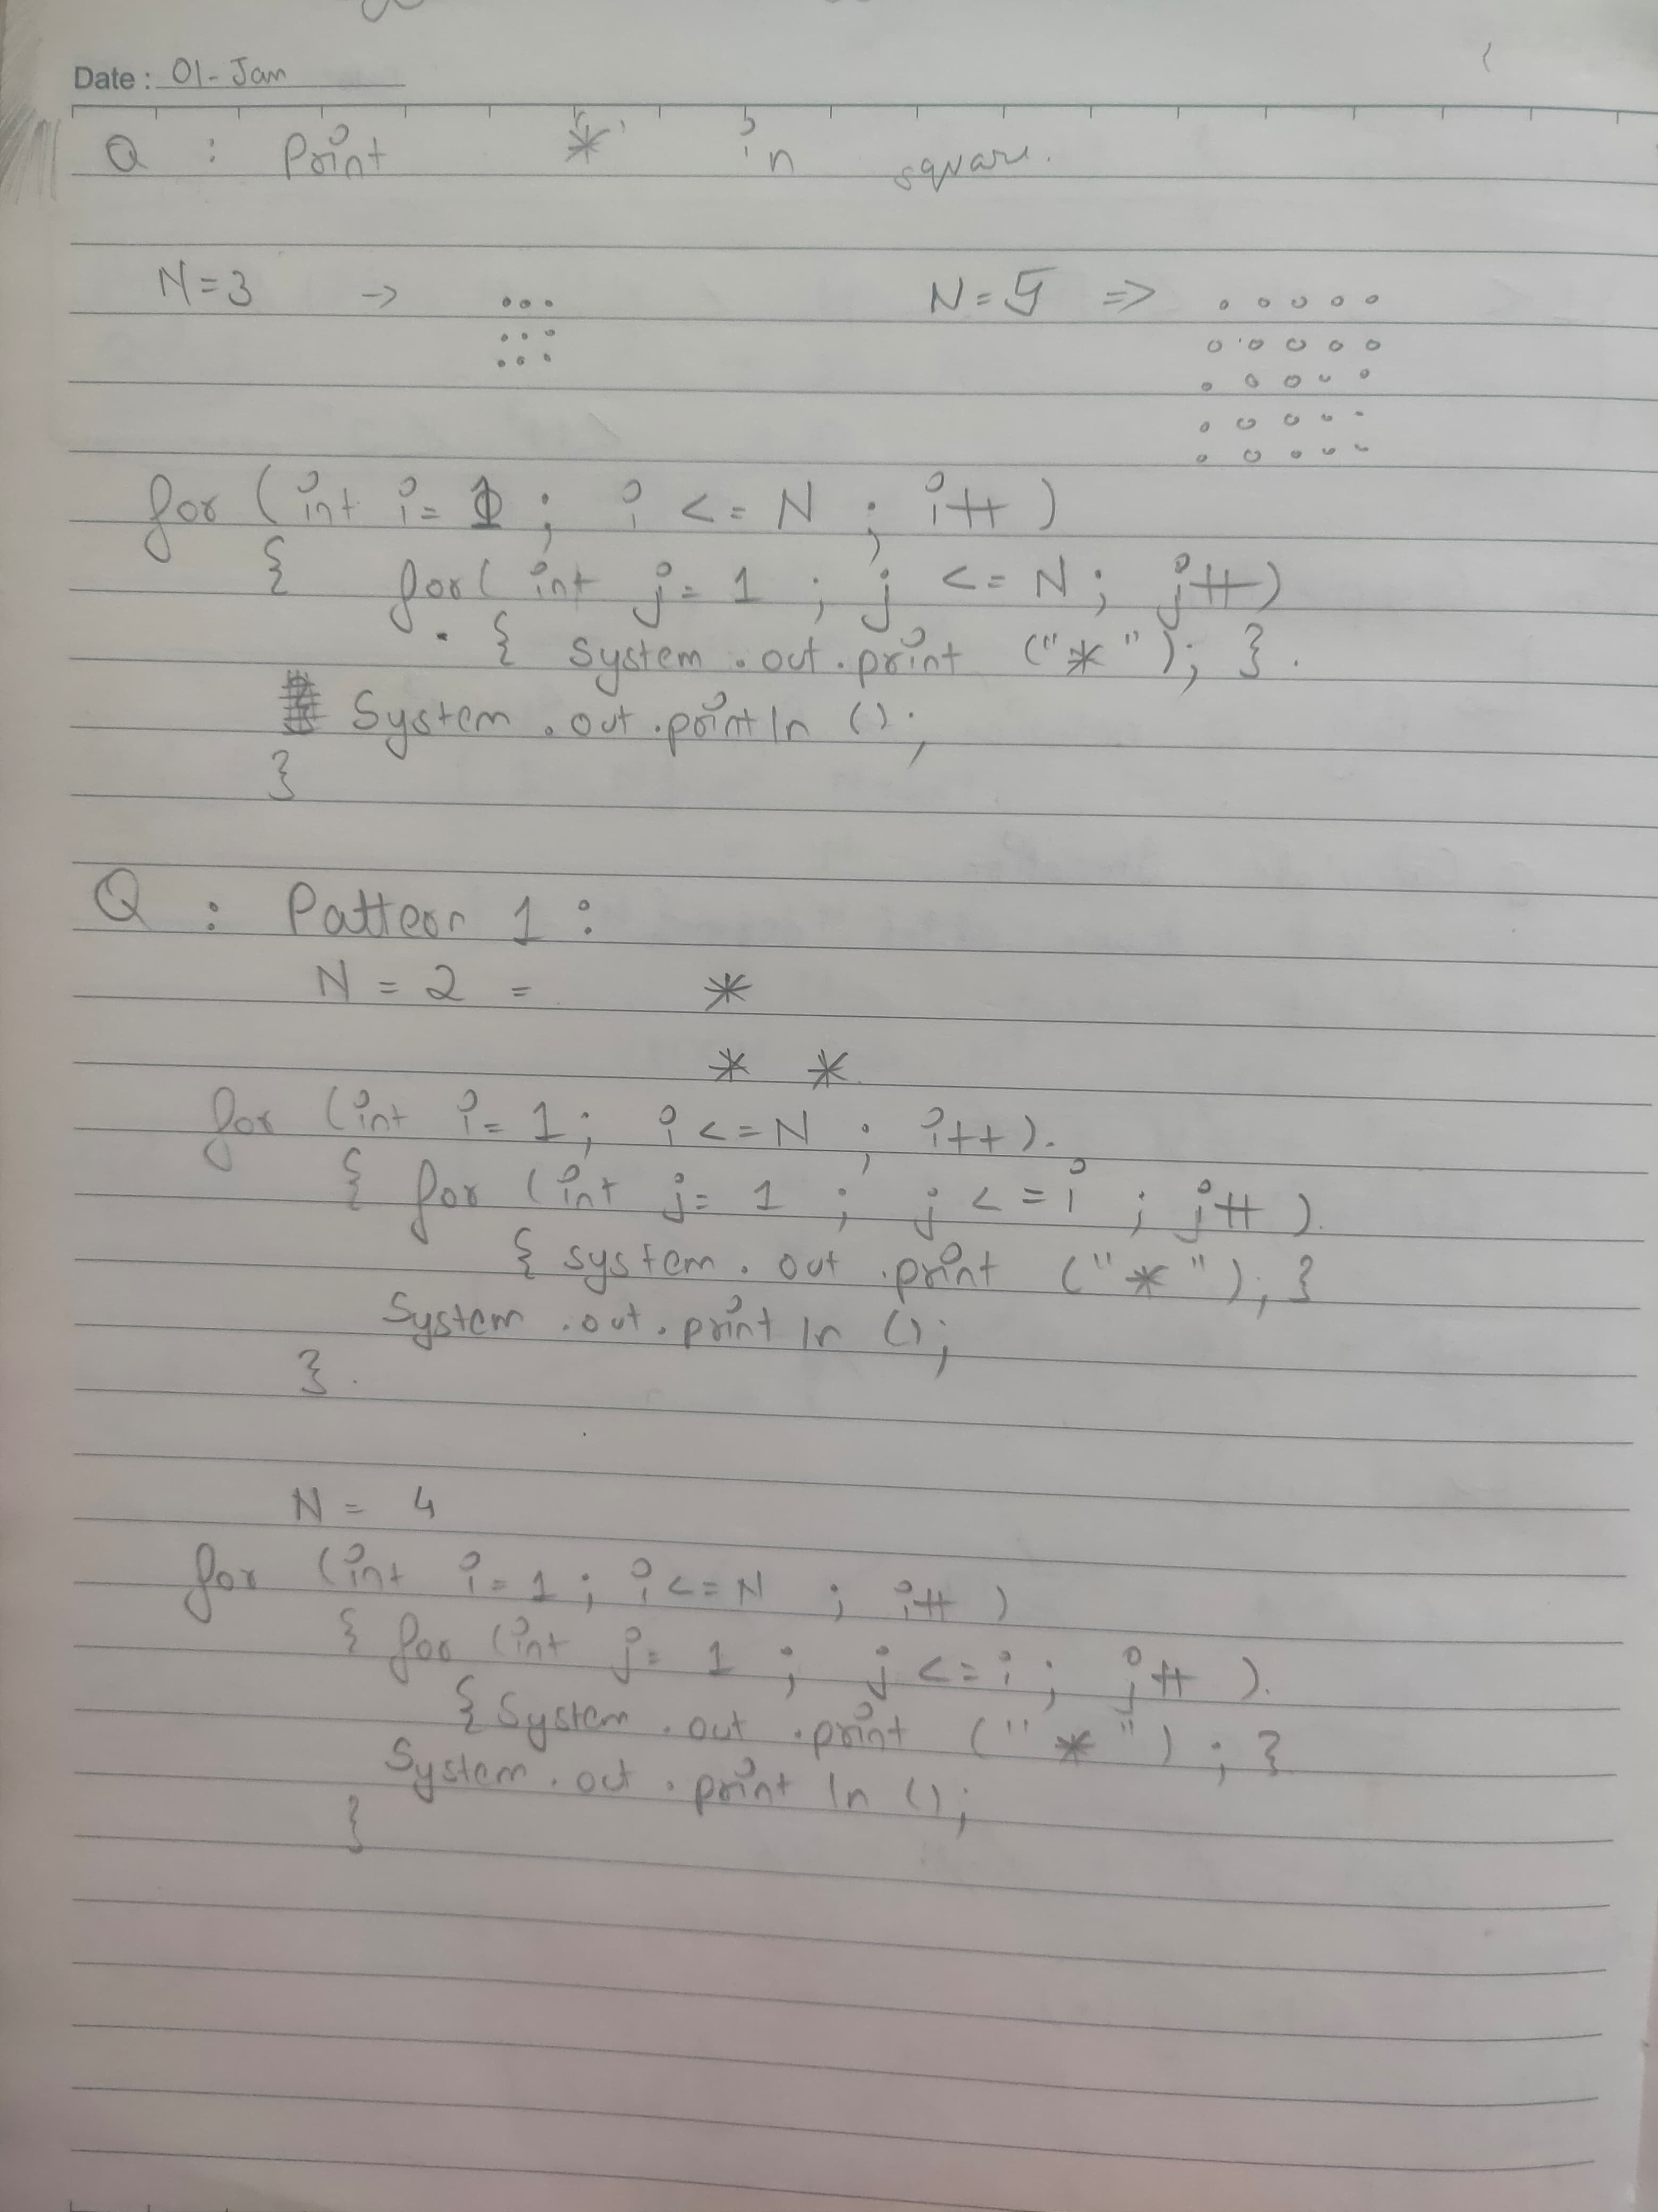 Date : 01-Jan
Q : Print * in square.
N=3 → N=5 =>
for (int i=1; i <= N ; i++)
{ for( int j=1 ; j <= N; j++)
{ System.out.print ("*"); }.
System.out.println ();
}
Q : Pattern 1 :
N = 2 = *
* *
for (int i=1; i<=N ; i++).
{ for (int j=1 ; j <=i ; j++).
{ system.out.print ("*"); }
System.out.println ();
}.
N = 4
for (int i=1; i<=N ; i++)
{ for (int j=1 ; j<=i ; j++).
{ System.out.print ("*"); }
System.out.println ();
}